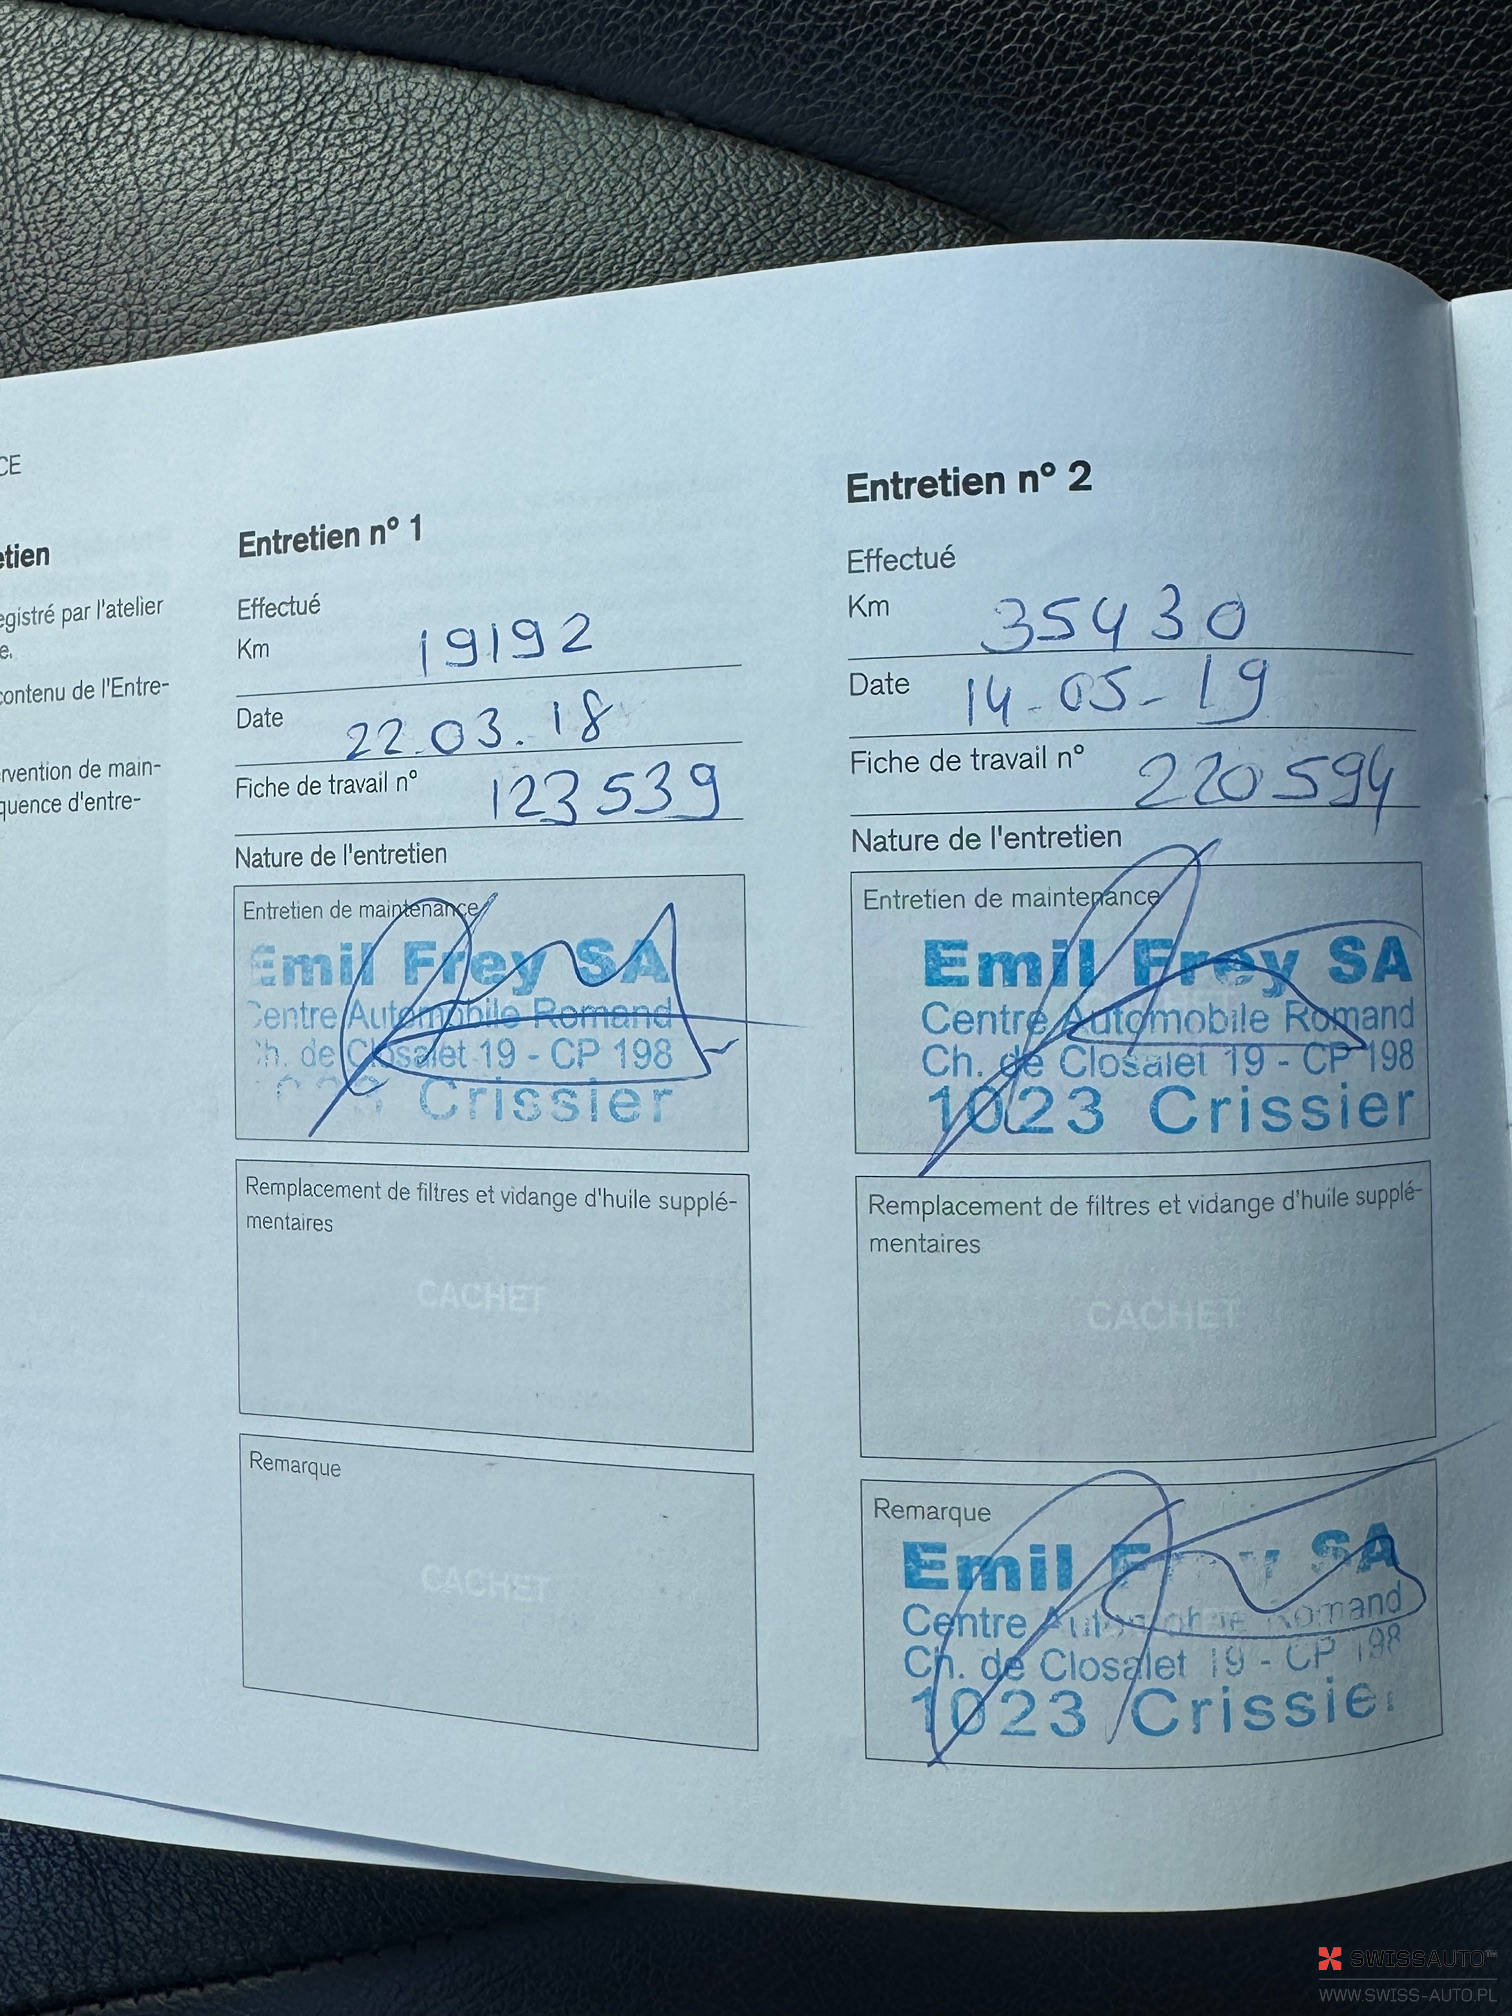 CE
etien
egistré par l'atelier
e.
contenu de l'Entre-
rvention de main-
quence d'entre-
Entretien n° 1
Effectué
Km 19192
Date 22.03.18
Fiche de travail n° 123539
Nature de l'entretien
Entretien de maintenance
Emil Frey SA
Centre Automobile Romand
Ch. de Closalet 19 - CP 198
1023 Crissier
Remplacement de filtres et vidange d'huile supplé-
mentaires
CACHET
Remarque
CACHET
Entretien n° 2
Effectué
Km 35430
Date 14-05-19
Fiche de travail n° 220594
Nature de l'entretien
Entretien de maintenance
Emil Frey SA
Centre Automobile Romand
Ch. de Closalet 19 - CP 198
1023 Crissier
Remplacement de filtres et vidange d'huile supplé-
mentaires
CACHET
Remarque
Emil Frey SA
Centre Automobile Romand
Ch. de Closalet 19 - CP 198
1023 Crissier
SWISSAUTO™
WWW.SWISS-AUTO.PL